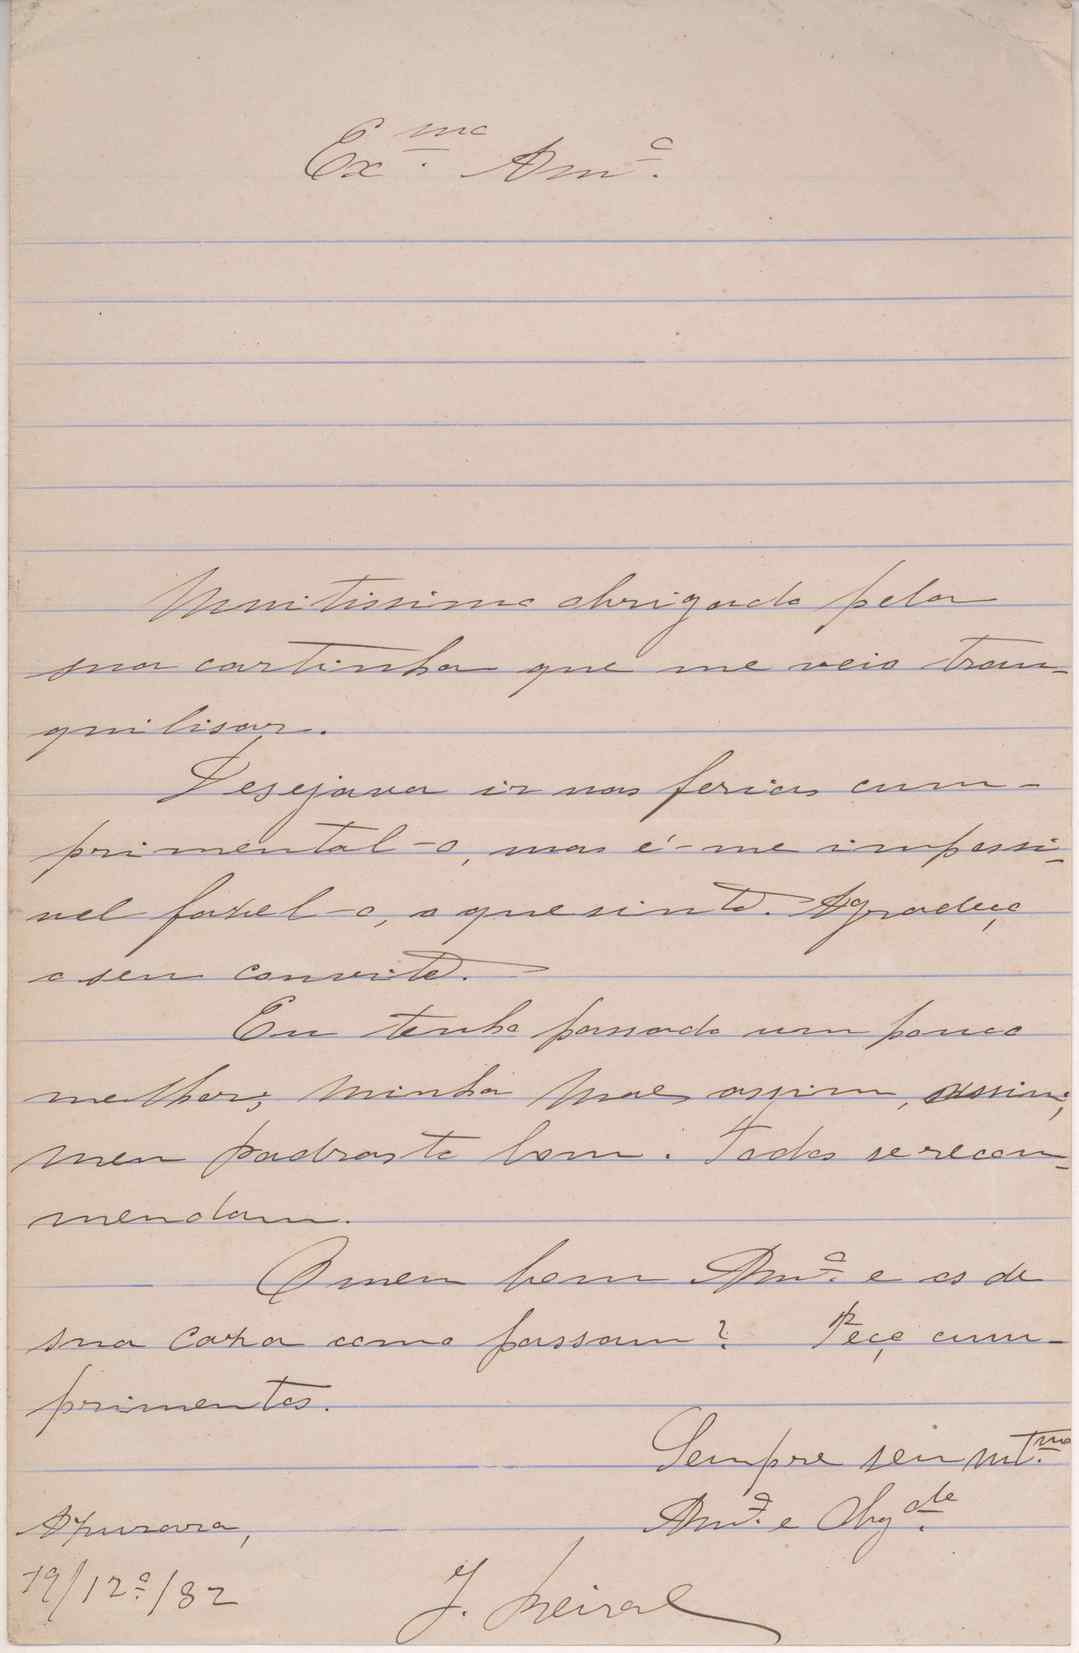 Ex.mo Am.o
Muitissimo obrigado pela
sua cartinha que me veio tran-
quilisar.
Desejava ir nas ferias cum-
primental-o, mas é-me impossi-
vel fazel-o, o que sinto. Agradeço
o seu convite.
Eu tenho passado um pouco
melhor; minha Mae assim, assim;
meu padrasto bom. Todos se recom-
mendam.
O meu bom Am.o e os de
sua caza como passam? Peço cum-
primentos.
Sempre seu mt.mo
Am.o e Obg.de
Azurara,
19/12º/82
J.